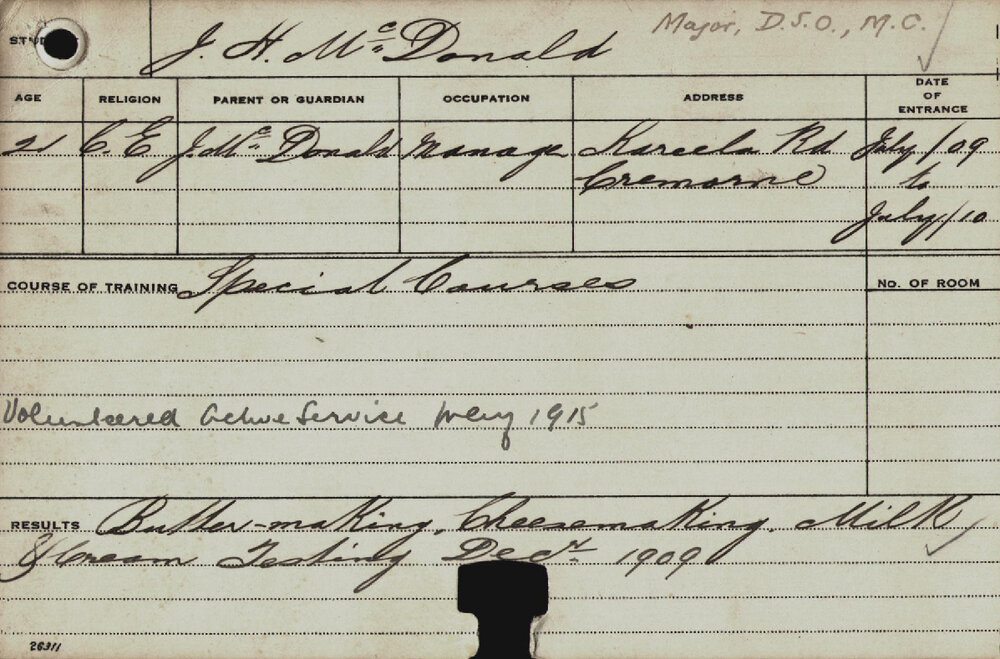 Major, D.S.O., M.C.
J. H. McDonald
AGE RELIGION PARENT OR GUARDIAN OCCUPATION ADDRESS DATE OF ENTRANCE
21 C. E J. McDonald Manager Kareela Rd July/09
Cremorne to
July/10
COURSE OF TRAINING Special Courses No. OF ROOM
Volunteered Active Service 1915
RESULTS Butter-making, Cheesemaking, Milk
& Cream Testing Decr 1909
26311